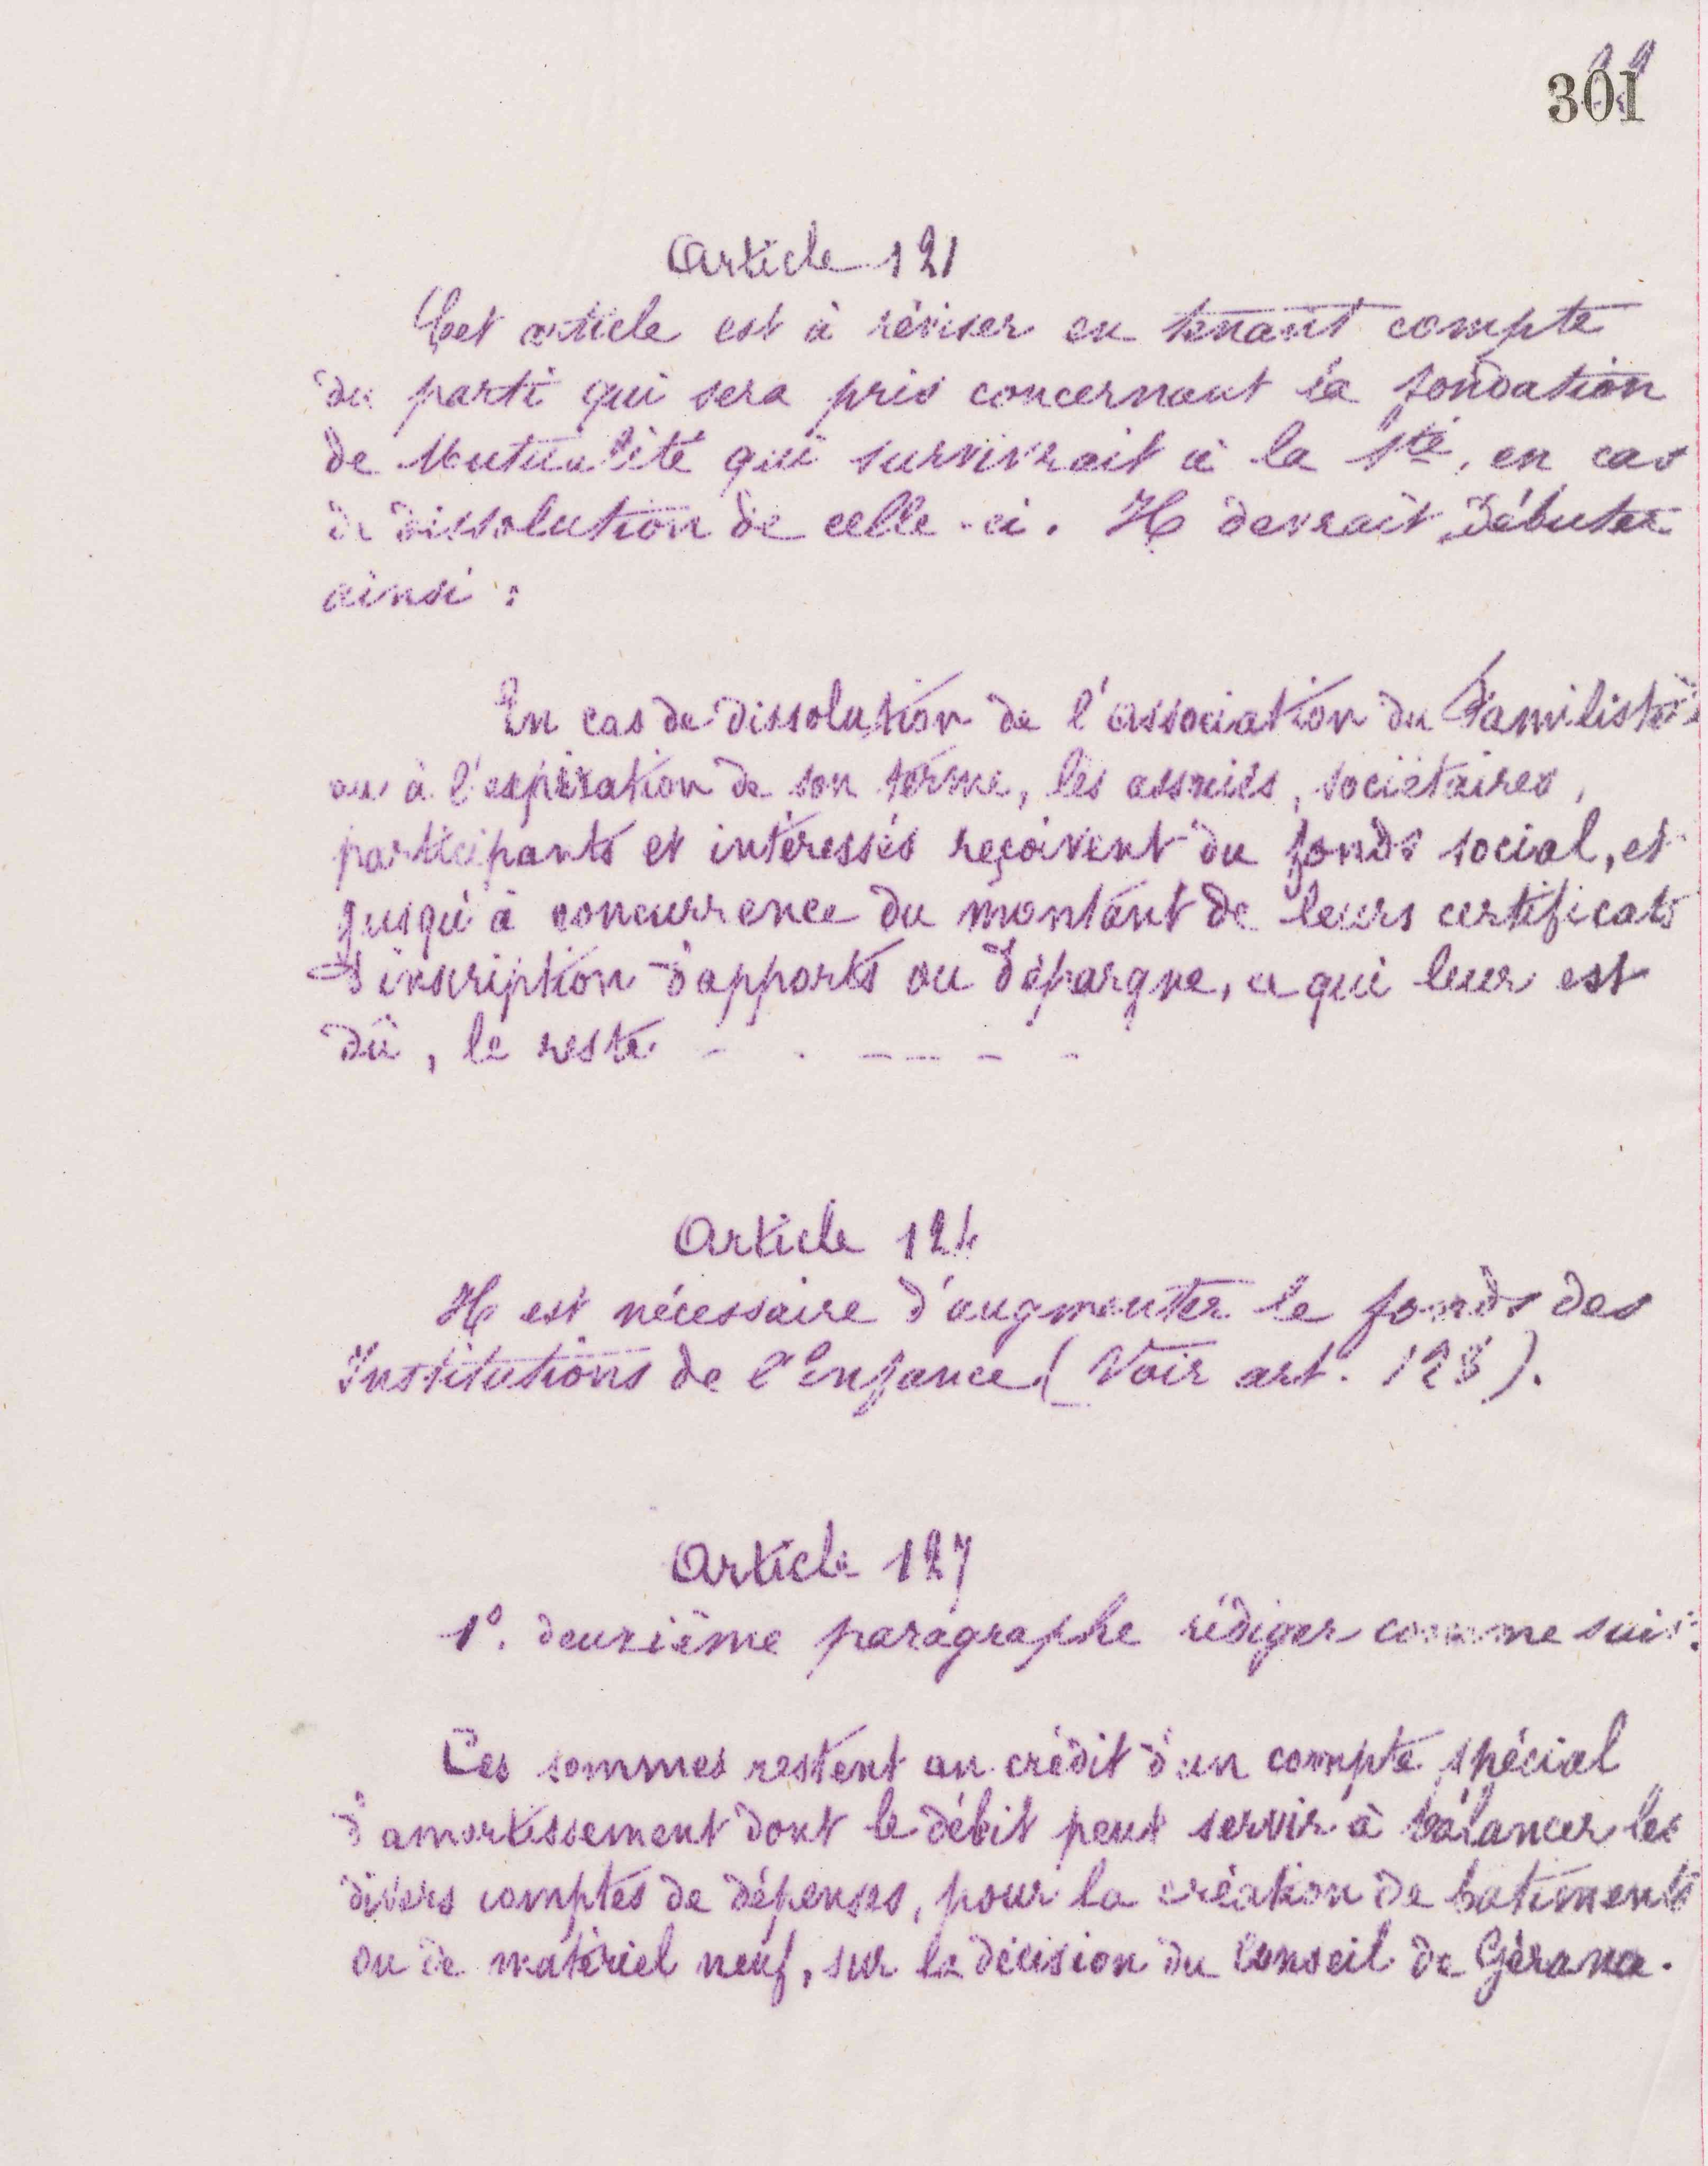 301
Article 121
Cet article est à réviser en tenant compte
du parti qui sera pris concernant la fondation
de Mutualité qui survivrait à la Sté, en cas
de dissolution de celle-ci. Il devrait débuter
ainsi :
En cas de dissolution de l'association du Familistère
ou à l'expiration de son terme, les associés, sociétaires,
participants et intéressés reçoivent du fonds social, et
jusqu'à concurrence du montant de leurs certificats
d'inscription d'apports ou d'épargne, ce qui leur est
dû, le reste - . - - - - -
Article 124
Il est nécessaire d'augmenter le fonds des
Institutions de l'Enfance (Voir art. 128).
Article 127
1º. deuxième paragraphe rédiger comme suit :
Ces sommes restent au crédit d'un compte spécial
d'amortissement dont le débit peut servir à balancer les
divers comptes de dépenses, pour la création de batiments
ou de matériel neuf, sur la décision du Conseil de Gérance.